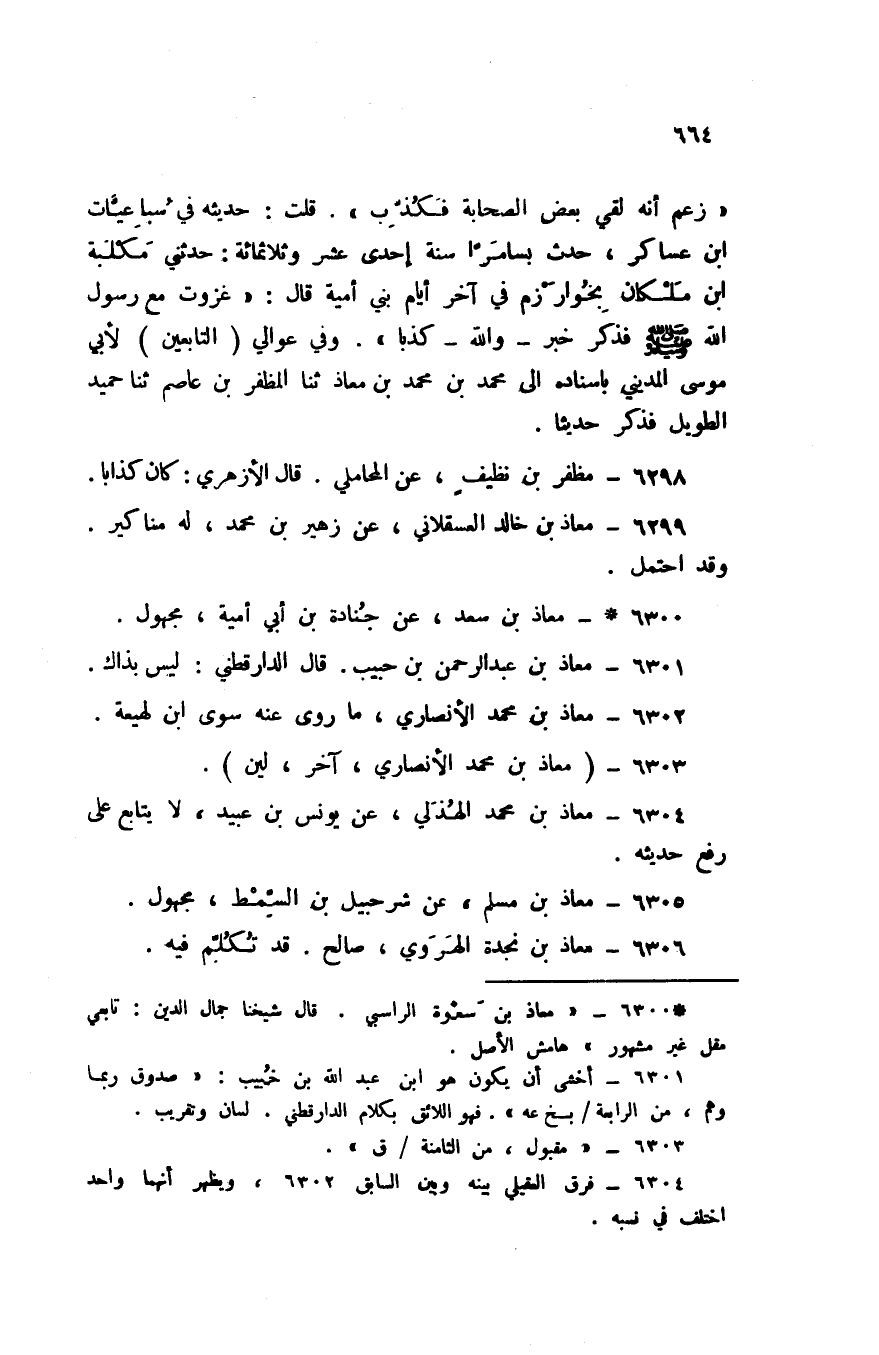 ٦٦٤
« زعم أنه لقي بعض الصحابة فَكُذِّب » . قلت : حديثه في سُباعيَّات
ابن عساكر ، حدث بسامَرَّا سنة إحدى عشر وثلاثمائة : حدثني مَكْلَبة
ابن مَلْكان بِخُوارَزم في آخر أيام بني أمية قال : « غزوت مع رسول
الله ﷺ فذكر خبر ـ والله ـ كذبا » . وفي عوالي ( التابعين ) لأبي
موسى المديني باسناده الى محمد بن محمد بن معاذ ثنا المظفر بن عاصم ثنا حميد
الطويل فذكر حديثا .
٦٢٩٨ ـ مظفر بن نظيفٍ ، عن المحاملي . قال الأزهري : كان كذابا .
٦٢٩٩ ـ معاذ بن خالد العسقلاني ، عن زهير بن محمد ، له مناكير .
وقد احتمل .
٦٣٠٠ * ـ معاذ بن سعد ، عن جُنادة بن أبي أمية ، مجهول .
٦٣٠١ ـ معاذ بن عبدالرحمن بن حبيب . قال الدارقطني : ليس بذاك .
٦٣٠٢ ـ معاذ بن محمد الأنصاري ، ما روى عنه سوى ابن لهيعة .
٦٣٠٣ ـ ( معاذ بن محمد الأنصاري ، آخر ، لين ) .
٦٣٠٤ ـ معاذ بن محمد الهُذَلي ، عن يونس بن عبيد ، لا يتابع على
رفع حديثه .
٦٣٠٥ ـ معاذ بن مسلم ، عن شرحبيل بن السِّمْط ، مجهول .
٦٣٠٦ ـ معاذ بن نجدة الهَرَوي ، صالح . قد تُكُلِّم فيه .
*٦٣٠٠ ـ « معاذ بن سَعْوة الراسبي . قال شيخنا جمال الدين : تابعي
مقل غير مشهور » هامش الأصل .
٦٣٠١ ـ أخشى أن يكون هو ابن عبد الله بن خُبيب : « صدوق ربما
وهم ، من الرابعة / بخ عه » . فهو اللائق بكلام الدارقطني . لسان وتقريب .
٦٣٠٣ ـ « مقبول ، من الثامنة / ق » .
٦٣٠٤ ـ فرق العقيلي بينه وبين السابق ٦٣٠٢ ، ويظهر أنهما واحد
اختلف في نسبه .